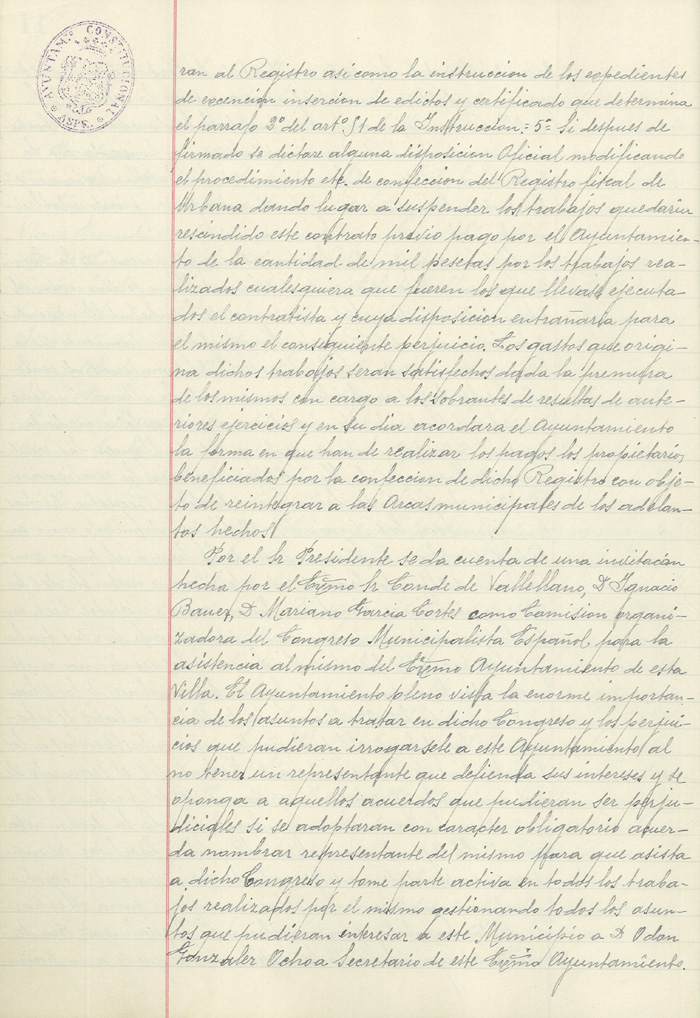 AYUNTAM.º CONSTITUCIONAL
ran al Registro asi como la instruccion de los expedientes
de excencion insercion de edictos y certificado que determina
el parrafo 2º del artº 51 de la Instruccion = 5ª Si despues de
firmado se dictare alguna disposicion Oficial modificando
el procedimiento etc. de confeccion del Registro fiscal de
Urbana dando lugar a suspender los trabajos quedaria
rescindido este contrato previo pago por el Ayuntamien-
to de la cantidad de mil pesetas por los trabajos rea-
lizados cualesquiera que fueren los que llevase ejecuta-
dos el contratista y cuya disposicion entrañaria para
el mismo el consiguiente perjuicio. Los gastos que origi-
na dichos trabajos seran satisfechos dada la premura
de los mismos con cargo a los sobrantes de resultas de ante-
riores ejercicios y en su dia acordara el Ayuntamiento
la forma en que han de realizar los pagos los propietarios
beneficiados por la confeccion de dicho Registro con obje-
to de reintegrar a las Arcas municipales de los adelan-
tos hechos
Por el Sr Presidente se da cuenta de una invitacan
hecha por el Exmo Sr Conde de Vallellano, D Ignacio
Bauer, D Mariano Garcia Cortes como Comision organi-
zadora del Congreso Municipalista Español para la
asistencia al mismo del Exmo Ayuntamiento de esta
Villa. El Ayuntamiento pleno vista la enorme importan-
cia de los asuntos a tratar en dicho Congreso y los perjui-
cios que pudieran irrogarsele a este Ayuntamiento al
no tener un representante que defienda sus intereses y se
oponga a aquellos acuerdos que pudieran ser perju-
diciales si se adoptaran con caracter obligatorio acuer-
da nombrar representante del mismo para que asista
a dicho Congreso y tome parte activa en todos los traba-
jos realizados por el mismo gestionando todos los asun-
tos que pudieran interesar a este Municipio a D Odon
Gonzalez Ochoa Secretario de este Exmo Ayuntamiento.